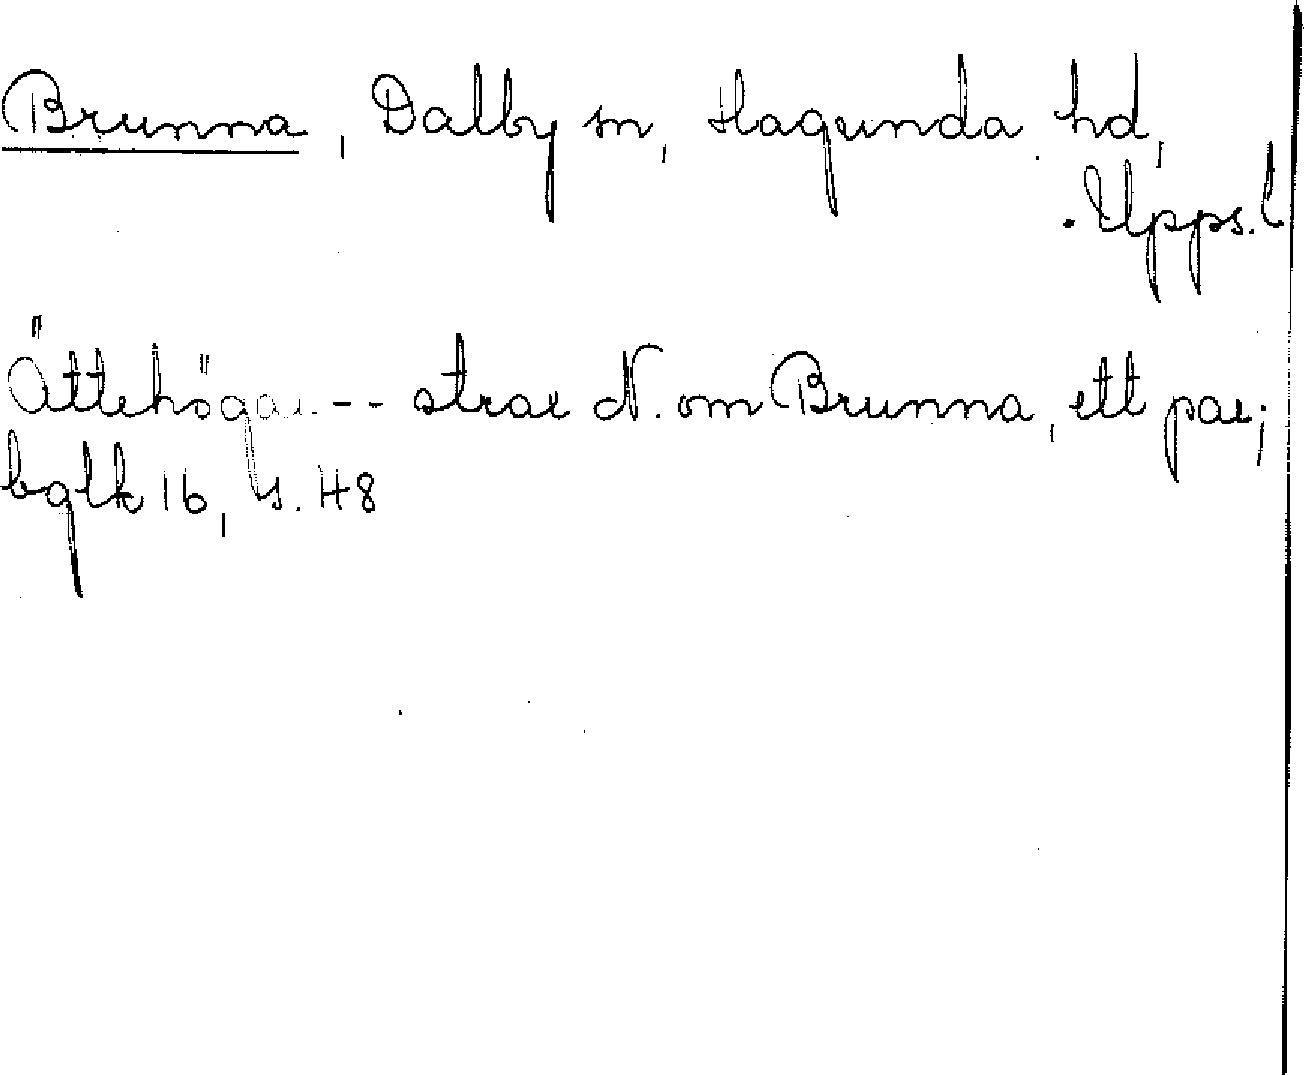 Brunna, Dalby sn, Hagunda hd,
Upps. l
Ättehögar -- strax N. om Brunna, ett par;
bglk 16, s. 48